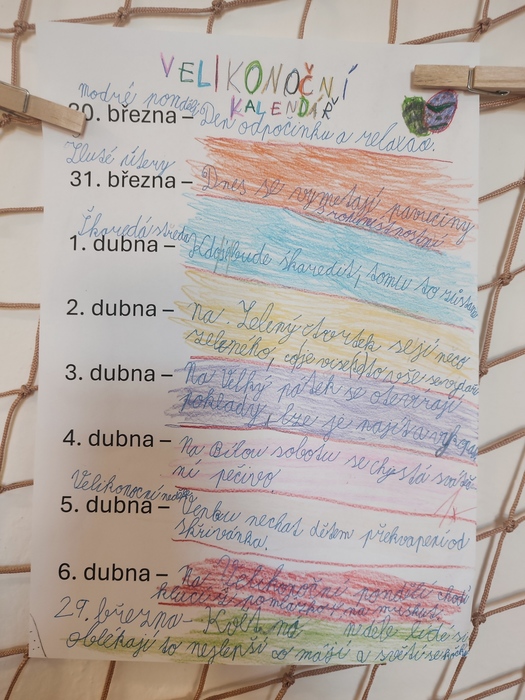 VELIKONOČNÍ
KALENDÁŘ
modré pondělí
30. března – Den odpočinku a relaxao.
Žluté úterý
31. března – Dnes se vymetají pavučiny
z rohů místností
Škaredá středa
1. dubna – Kdo bude škaredit, tomu to zůstane
2. dubna – Na. Zelený čtvrtek se jí neco
zeleného,
3. dubna – Na Velký pátek se otevírají
poklady, lze je najít a
4. dubna – Na Bílou sobotu se chystá sváteč
ní pečivo
Velikonoční neděle
5. dubna – Venku nechat dětem překvapení od
skřivánka.
6. dubna – Na Velikonoční pondělí chodí
kluci s pomlázkou na mrskut.
29. března – Květná neděle lidé si
oblékají to nejlepší co mají a světí se